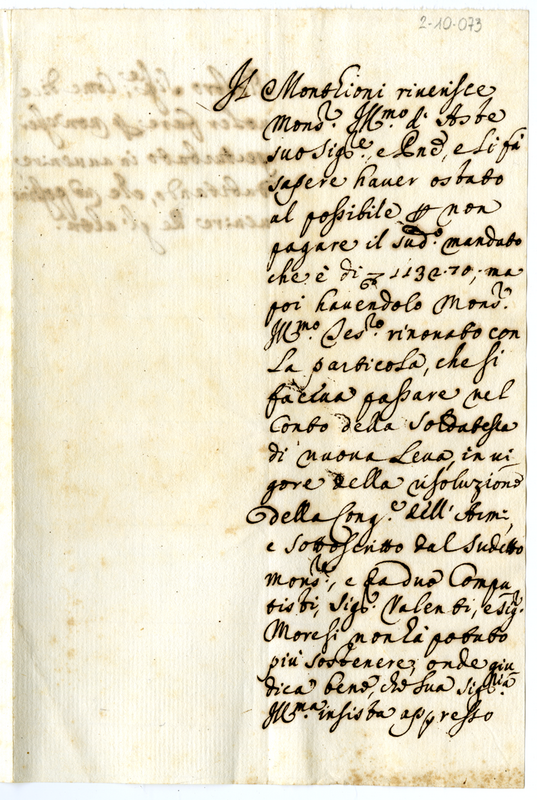 2-10-073
Il Montioni riverisce
Mons.r Ill.mo d'Aste
suo Sig.re, e Pne, e li fà
sapere haver ostato
al possibile p non
pagare il sud.o mandato
che è di 1132.70, ma
poi havendolo Mons.r
Ill.mo Tes.ro rinovato con
la particola, che si
faccia passare nel
Conto della Soldatesca
di nuova Leva, in vi
gore della risoluzione
della Cong.e dell' Arm:,
e sottoscritto dal sudetto
Mons.r, e da due Compu
tisti, Sig.r Valenti, e Sig.r
Moresi non hà potuto
più sostenere; onde giu
dica bene, che sua Sig.ria
Ill.ma insista appresso